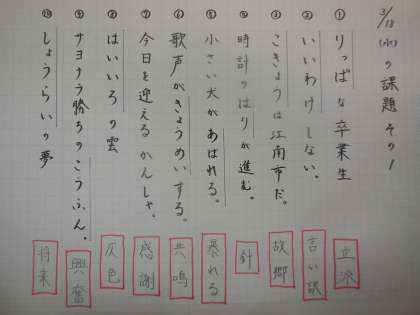 3/18(水)の課題 その1
① りっぱな卒業生 立派
② いいわけしない。 言い訳
③ こきょうは江南市だ。 故郷
④ 時計のはりが進む。 針
⑤ 小さい犬があばれる。 暴れる
⑥ 歌声がきょうめいする。 共鳴
⑦ 今日を迎えるかんしゃ。 感謝
⑧ はいいろの雲 灰色
⑨ サヨナラ勝ちのこうふん。 興奮
⑩ しょうらいの夢 将来